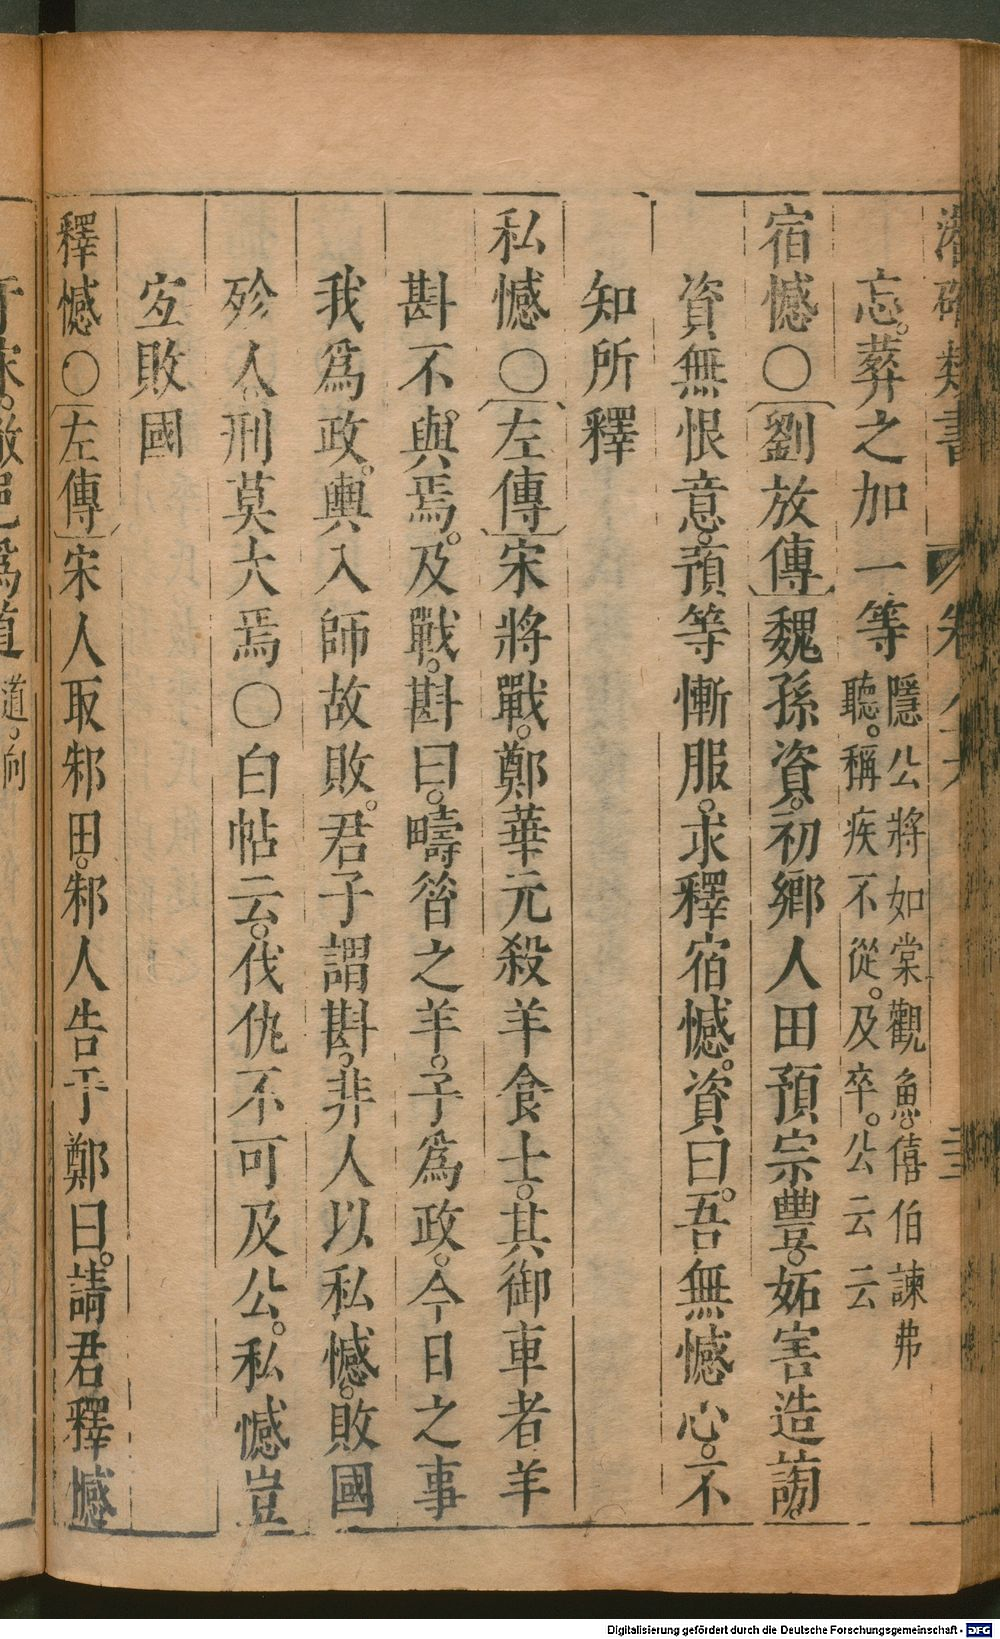 潛確類書 卷
忘。葬之加一等隱公將如棠觀魚。僖伯諫弗
聽。稱疾不從。及卒。公云云
宿憾〇〔劉放傳〕魏孫資。初鄉人田預宗豐。妬害造謗。
資無恨意。預等慚服。求釋宿憾。資曰。吾無憾心。不
知所釋
私憾〇〔左傳〕宋將戰。鄭華元殺羊食士。其御車者羊
斟不與焉。及戰。斟曰。疇昝之羊。子為政。今日之事
我為政。輿入師故敗。君子謂斟。非人以私憾。敗國
殄人刑莫大焉〇白帖云。伐仇不可及公。私憾豈
宐敗國
釋憾〇〔左傳〕宋人取邾田。邾人告于鄭曰。請君釋憾
于宋。敝邑為道道。向
Digitalisierung gefördert durch die Deutsche Forschungsgemeinschaft - DFG